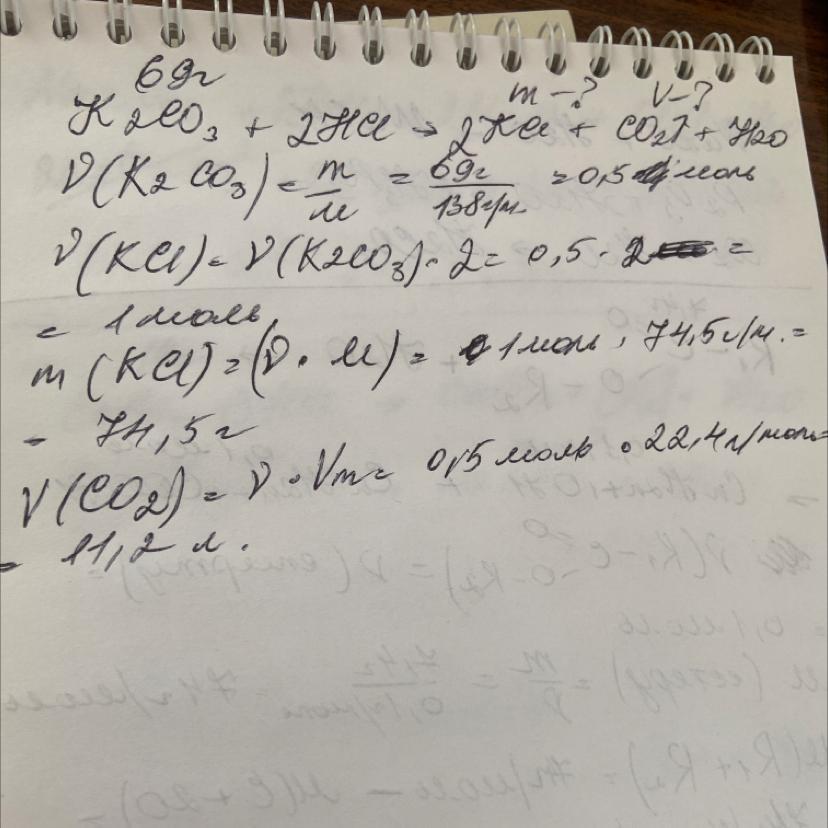 69г m-? V-?
K2CO3 + 2HCl → 2KCl + CO2↑ + H2O
ν(K2CO3) = m/M = 69г/138г/м = 0,5 моль
ν(KCl) = ν(K2CO3) · 2 = 0,5 · 2 =
= 1 моль
m(KCl) = (ν · M) = 1 моль · 74,5 г/м. =
= 74,5 г
V(CO2) = ν · Vm = 0,5 моль · 22,4 л/моль =
= 11,2 л.